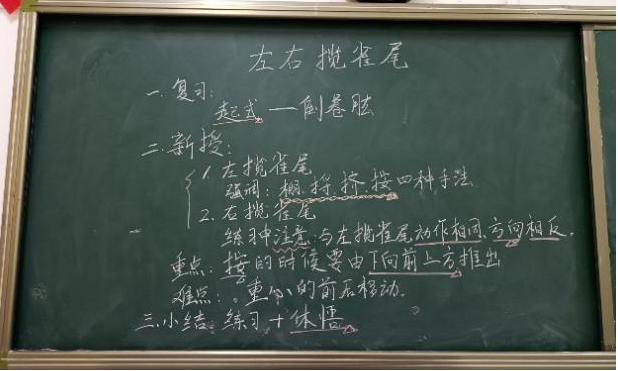 左右揽雀尾
一.复习:
起式——倒卷肱
二.新授:
1.左揽雀尾
强调:棚.捋.挤.按四种手法
2.右揽雀尾
练习中注意:与左揽雀尾动作相同.方向相反.
重点:按的时候要由下向前上方推出
难点:重心的前后移动.
三.小结:练习+体悟